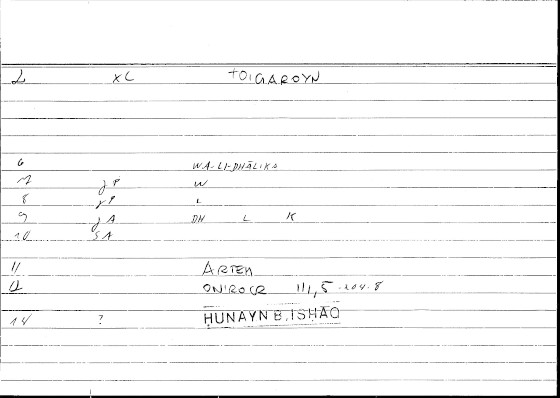 2 XC TOIGAROYN
6 WA-LI-DHĀLIKA
7 JP W
8 JP L
9 JA DH L K
10 SA
11 ARTEM
12 ONIROCR III,5 204.8
14 ? HUNAYN B. ISHAQ